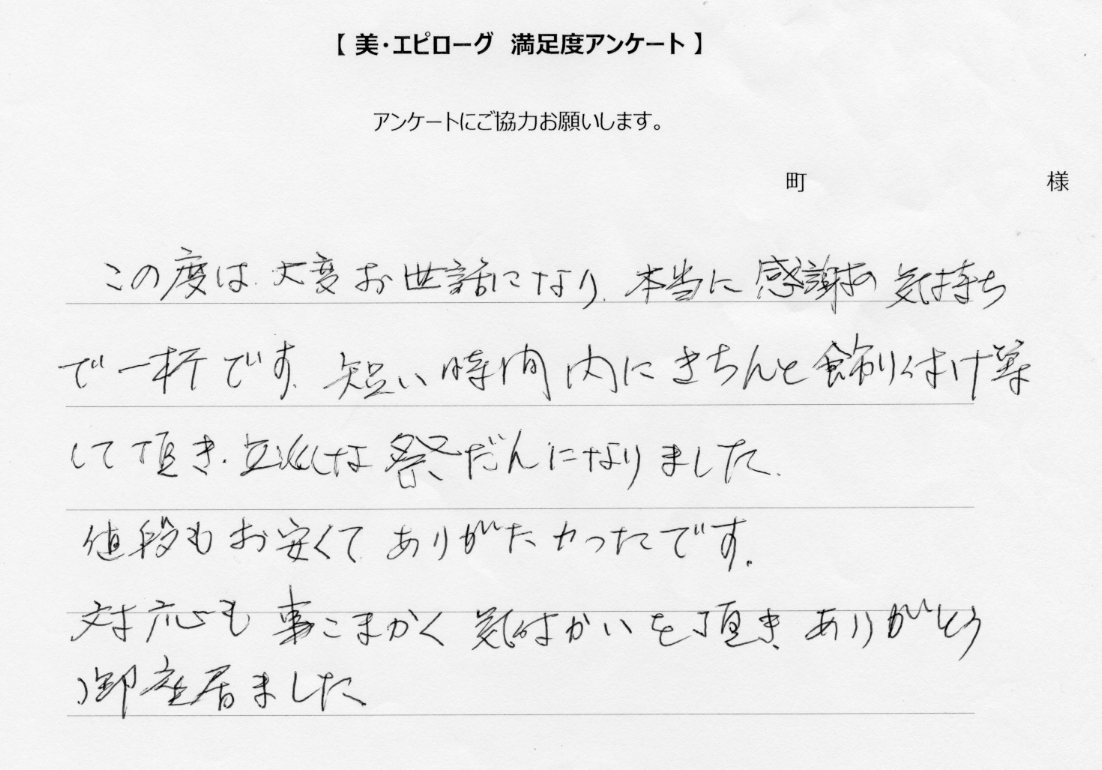 【 美・エピローグ 満足度アンケート 】
アンケートにご協力お願いします。
町 様
この度は大変お世話になり、本当に感謝の気持ち
で一杯です。短い時間内にきちんと飾り付け等
して頂き、立派な祭だんになりました。
値段もお安くてありがたかったです。
対応も事こまかく気付かいを頂きありがとう
御座居ました